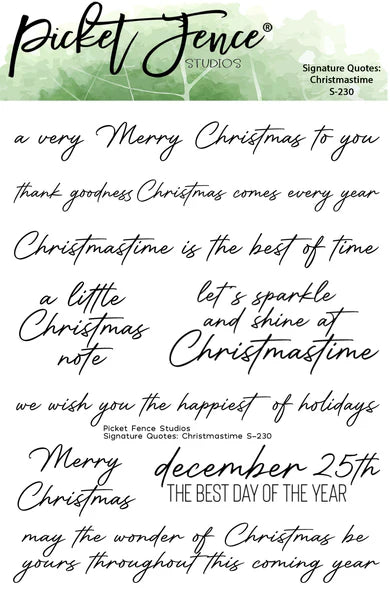 Picket Fence®
STUDIOS
Signature Quotes:
Christmastime
S-230
a very Merry Christmas to you
thank goodness Christmas comes every year
Christmastime is the best of time
a little
Christmas
note
let's sparkle
and shine at
Christmastime
we wish you the happiest of holidays
Picket Fence Studios
Signature Quotes: Christmastime S-230
Merry
Christmas
december 25th
THE BEST DAY OF THE YEAR
may the wonder of Christmas be
yours throughout this coming year